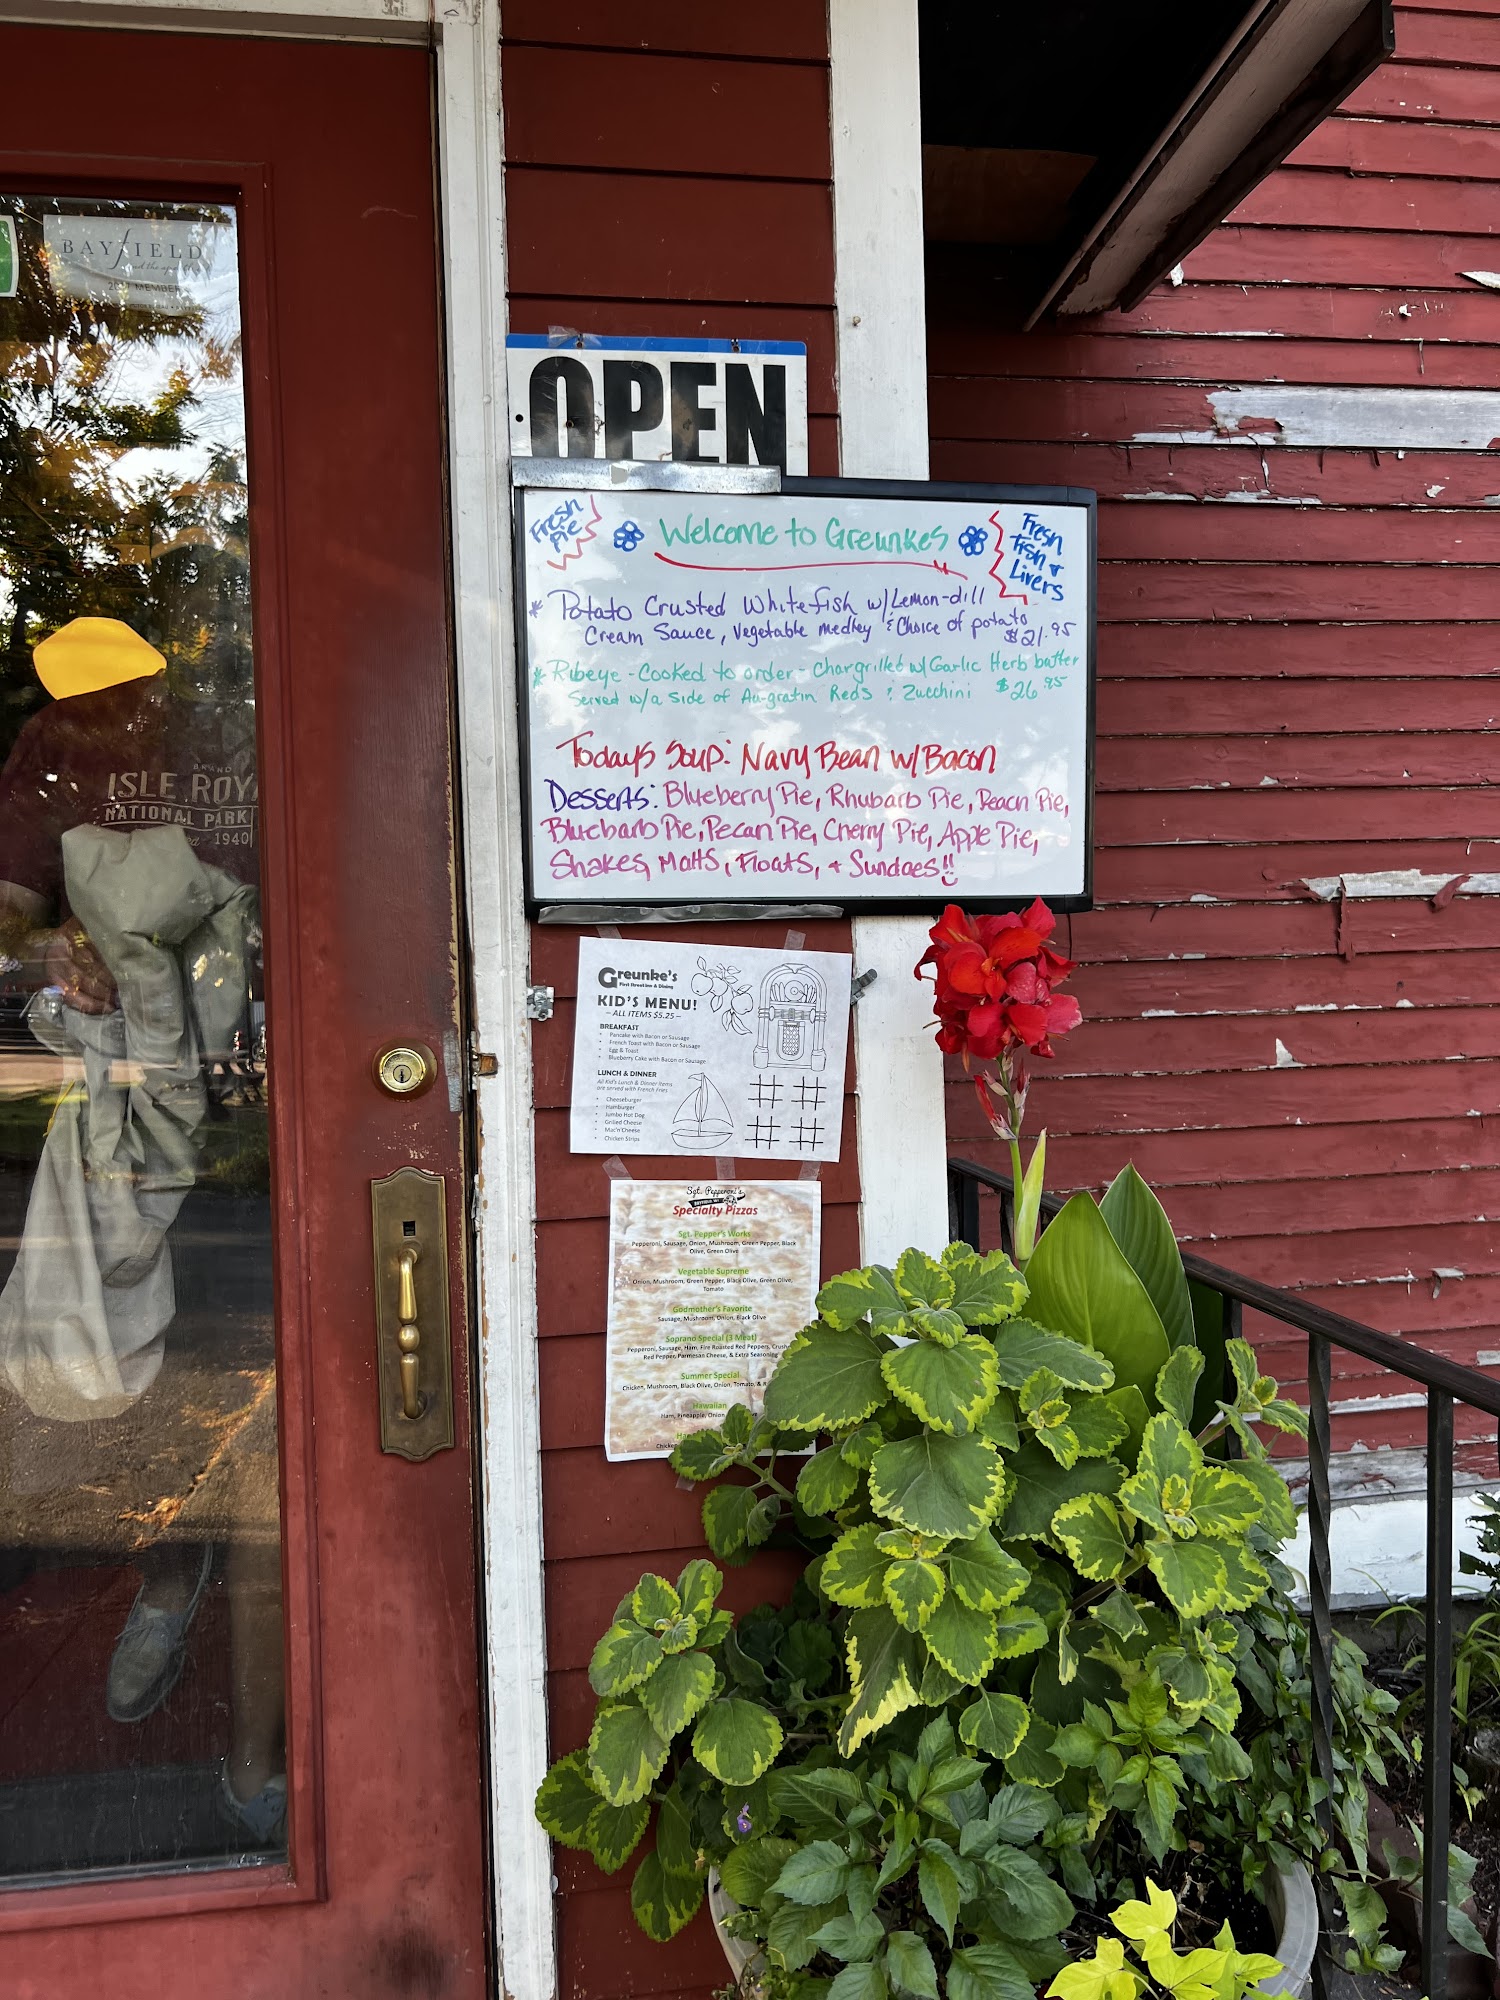 BAYfIELD
MEMBER
OPEN
Fresh
Pie
Welcome to Greunkes
Fresh
Fish +
Livers
* Potato Crusted Whitefish w/Lemon-dill
Cream Sauce, Vegetable medley & Choice of potato
$21.95
* Ribeye - Cooked to order - Chargrilled w/ Garlic Herb butter
Served w/a side of Au-gratin Reds & Zucchini $26.95
Todays Soup: Navy Bean w/Bacon
Desserts: Blueberry Pie, Rhubarb Pie, Peach Pie,
Bluebarb Pie, Pecan Pie, Cherry Pie, Apple Pie,
Shakes, Malts, Floats, + Sundaes!!
BRAND
ISLE ROYA
NATIONAL PARK
1940
Greunke's
First Street Inn & Dining
KID'S MENU!
– ALL ITEMS $5.25 –
BREAKFAST
• Pancake with Bacon or Sausage
• French Toast with Bacon or Sausage
• Egg & Toast
• Blueberry Cake with Bacon or Sausage
LUNCH & DINNER
All Kid's Lunch & Dinner items
are served with French Fries
• Cheeseburger
• Hamburger
• Jumbo Hot Dog
• Grilled Cheese
• Mac'n'Cheese
• Chicken Strips
Sgt. Pepperoni's
Specialty Pizzas
Sgt. Pepper's Works
Pepperoni, Sausage, Onion, Mushroom, Green Pepper, Black
Olive, Green Olive
Vegetable Supreme
Onion, Mushroom, Green Pepper, Black Olive, Green Olive,
Tomato
Godmother's Favorite
Sausage, Mushroom, Onion, Black Olive
Soprano Special (3 Meat)
Pepperoni, Sausage, Ham, Fire Roasted Red Peppers, Crush
Red Pepper, Parmesan Cheese, & Extra Seasoning
Summer Special
Chicken, Mushroom, Black Olive, Onion, Tomato, &
Hawaiian
Ham, Pineapple, Onion
Ha
Chicken